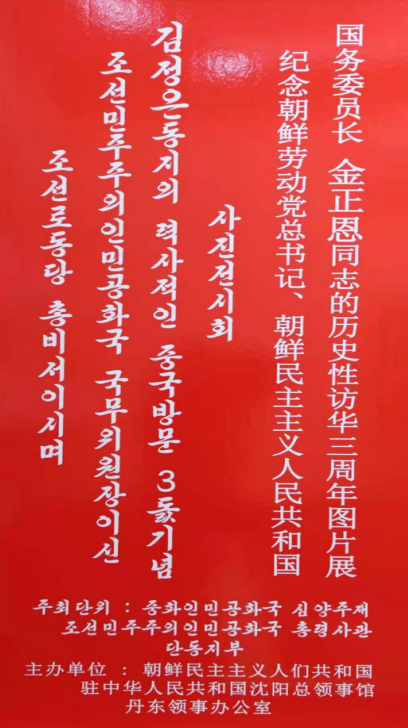 조선로동당 총비서이시며
조선민주주의인민공화국 국무위원장이신
김정은동지의 력사적인 중국방문 3돐기념
사진전시회
纪念朝鲜劳动党总书记、朝鲜民主主义人民共和国
国务委员长 金正恩同志的历史性访华三周年图片展
주최단위 : 중화인민공화국 심양주재
조선민주주의인민공화국 총령사관
단동지부
主办单位 : 朝鲜民主主义人们共和国
驻中华人民共和国沈阳总领事馆
丹东领事办公室